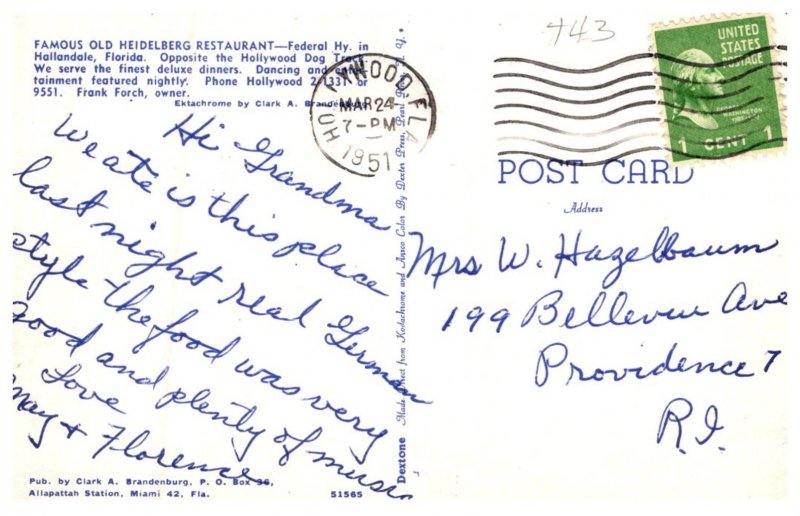 FAMOUS OLD HEIDELBERG RESTAURANT—Federal Hy. in
Hallandale, Florida. Opposite the Hollywood Dog Track.
We serve the finest deluxe dinners. Dancing and enter-
tainment featured nightly. Phone Hollywood 2-1331 or
9551. Frank Forch, owner.
Ektachrome by Clark A. Brandenburg
Hi Grandma
We ate is this place
last night real German
style the food was very
good and plenty of music
Love
May + Florence
Pub. by Clark A. Brandenburg, P. O. Box 36,
Allapattah Station, Miami 42, Fla.
51565
Dextone
Made Direct from Kodachrome and Ansco Color By Dexter Press, Pearl River, N. Y.
HOLLYWOOD, FLA.
MAR 24
7-PM
1951
743
UNITED
STATES
POSTAGE
GEORGE
WASHINGTON
1 CENT 1
POST CARD
Address
Mrs W. Hazelbaum
199 Bellevue Ave
Providence 7
R.I.